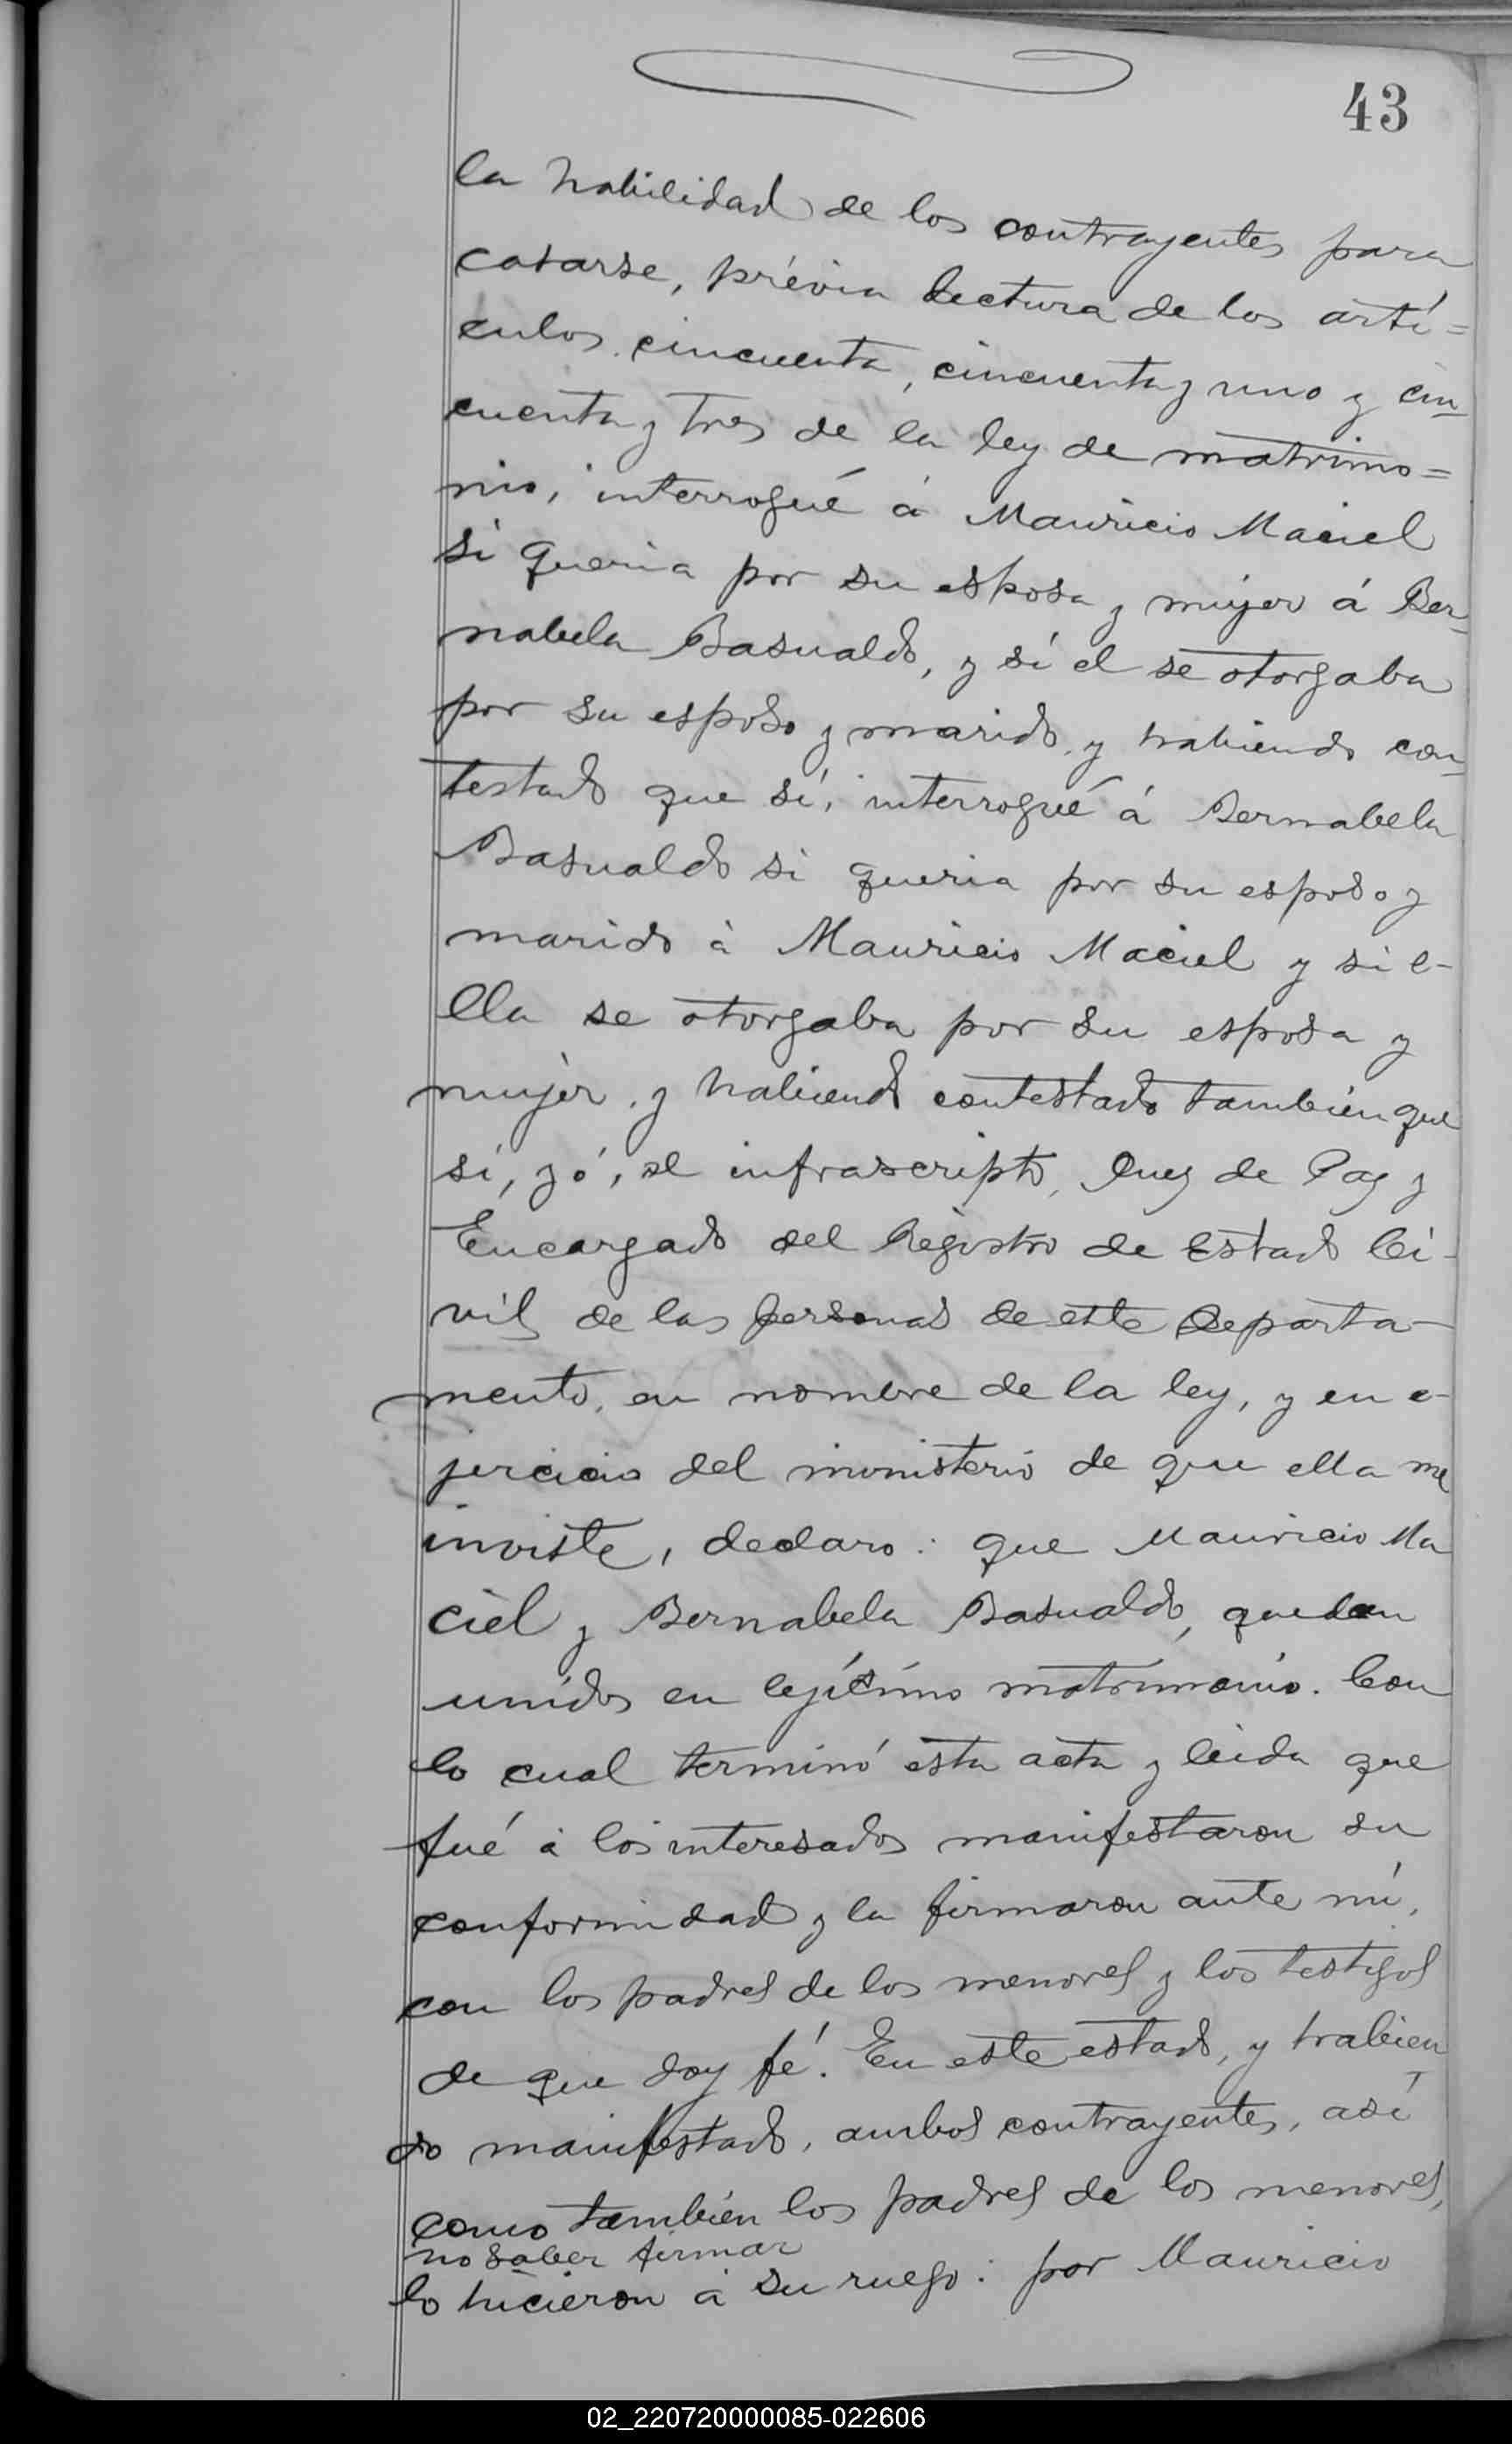 43
la habilidad de los contrayentes para
casarse, prévia lectura de los artí=
culos cincuenta, cincuenta y uno y cin_
cuenta y tres de la ley de matrimo=
nio, interrogué á Mauricio Maciel
si queria por su esposa y mujer á Ber_
nabela Basualdo, y sí el se otorgaba
por su esposo y marido, y habiendo con_
testado que sí, interrogué á Bernabela
Basualdo si queria por su esposo y
marido á Mauricio Maciel y si e-
lla se otorgaba por su esposa y
mujer, y habiendo contestado tambien que
sí, yó, el infrascripto, Juez de Paz y
Encargado del Registro de Estado Ci-
vil de las personas de este Departa-
mento, en nombre de la ley, y en e-
jercicio del ministerio de que ella me
inviste, declaro: que Mauricio Ma
ciel y Bernabela Basualdo, quedan
unidos en lejítimo matrimonio. Con
lo cual terminó esta acta y leida que
fué á los interesados manifestaron su
conformidad y la firmaron ante mí,
con los padres de los menores y los testigos
de que doy fé. En este estado, y habien
do manifestado, ambos contrayentes, así
como también los padres de los menores,
no saber firmar
lo hicieron á su ruego: por Mauricio
02_220720000085-022606